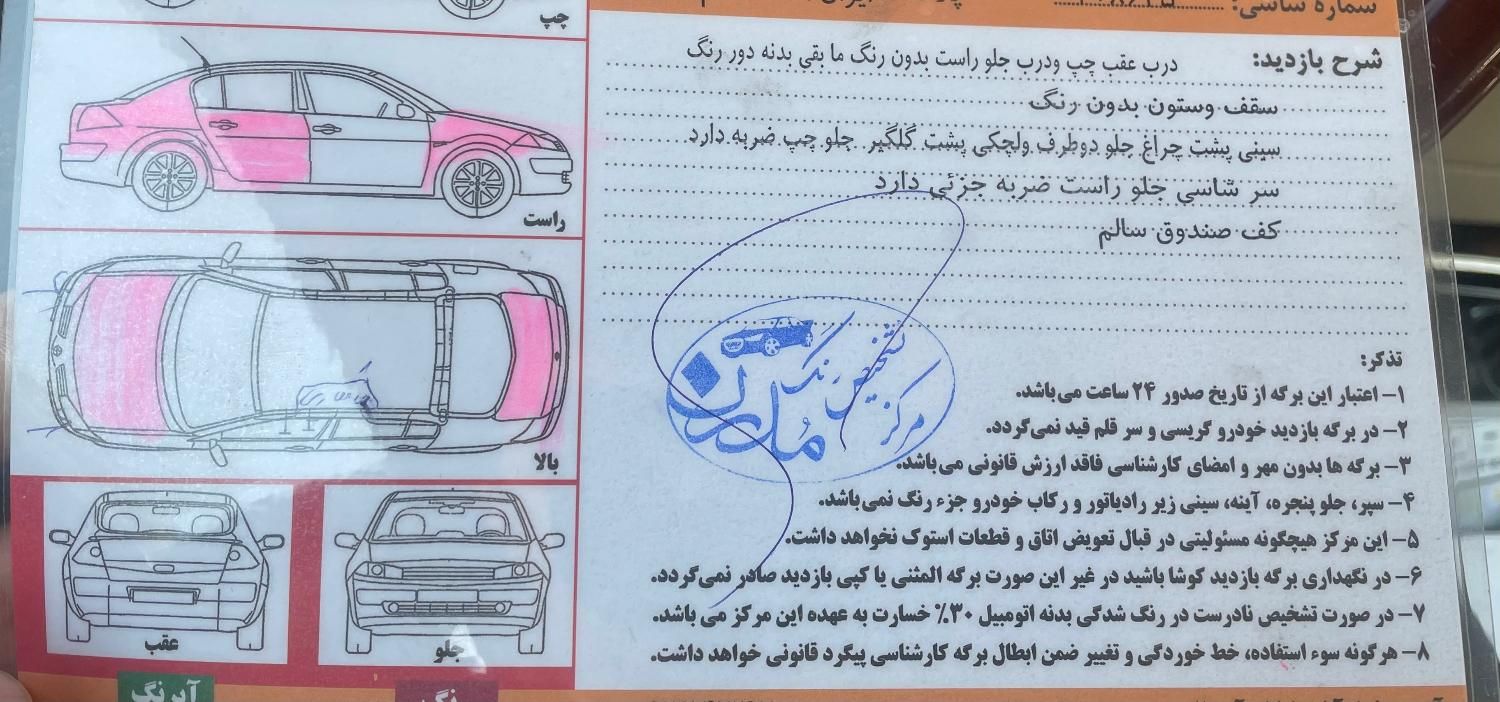 شماره شاسی:
شرح بازدید: درب عقب چپ ودرب جلو راست بدون رنگ ما بقی بدنه دور رنگ
سقف وستون بدون رنگ
سینی پشت چراغ جلو دوطرف ولچکی پشت گلگیر جلو چپ ضربه دارد
سر شاسی جلو راست ضربه جزئی دارد
کف صندوق سالم
مرکز تشخیص رنگ
مدرن
تذکر:
۱- اعتبار این برگه از تاریخ صدور ۲۴ ساعت می‌باشد.
۲- در برگه بازدید خودرو گریسی و سر قلم قید نمی‌گردد.
۳- برگه ها بدون مهر و امضای کارشناسی فاقد ارزش قانونی می‌باشد.
۴- سپر، جلو پنجره، آینه، سینی زیر رادیاتور و رکاب خودرو جزء رنگ نمی‌باشد.
۵- این مرکز هیچگونه مسئولیتی در قبال تعویض اتاق و قطعات استوک نخواهد داشت.
۶- در نگهداری برگه بازدید کوشا باشید در غیر این صورت برگه المثنی یا کپی بازدید صادر نمی‌گردد.
۷- در صورت تشخیص نادرست در رنگ شدگی بدنه اتومبیل ۳۰٪ خسارت به عهده این مرکز می باشد.
۸- هرگونه سوء استفاده، خط خوردگی و تغییر ضمن ابطال برگه کارشناسی پیگرد قانونی خواهد داشت.
چپ
راست
بالا
جلو
عقب
رنگ
آبرنگ